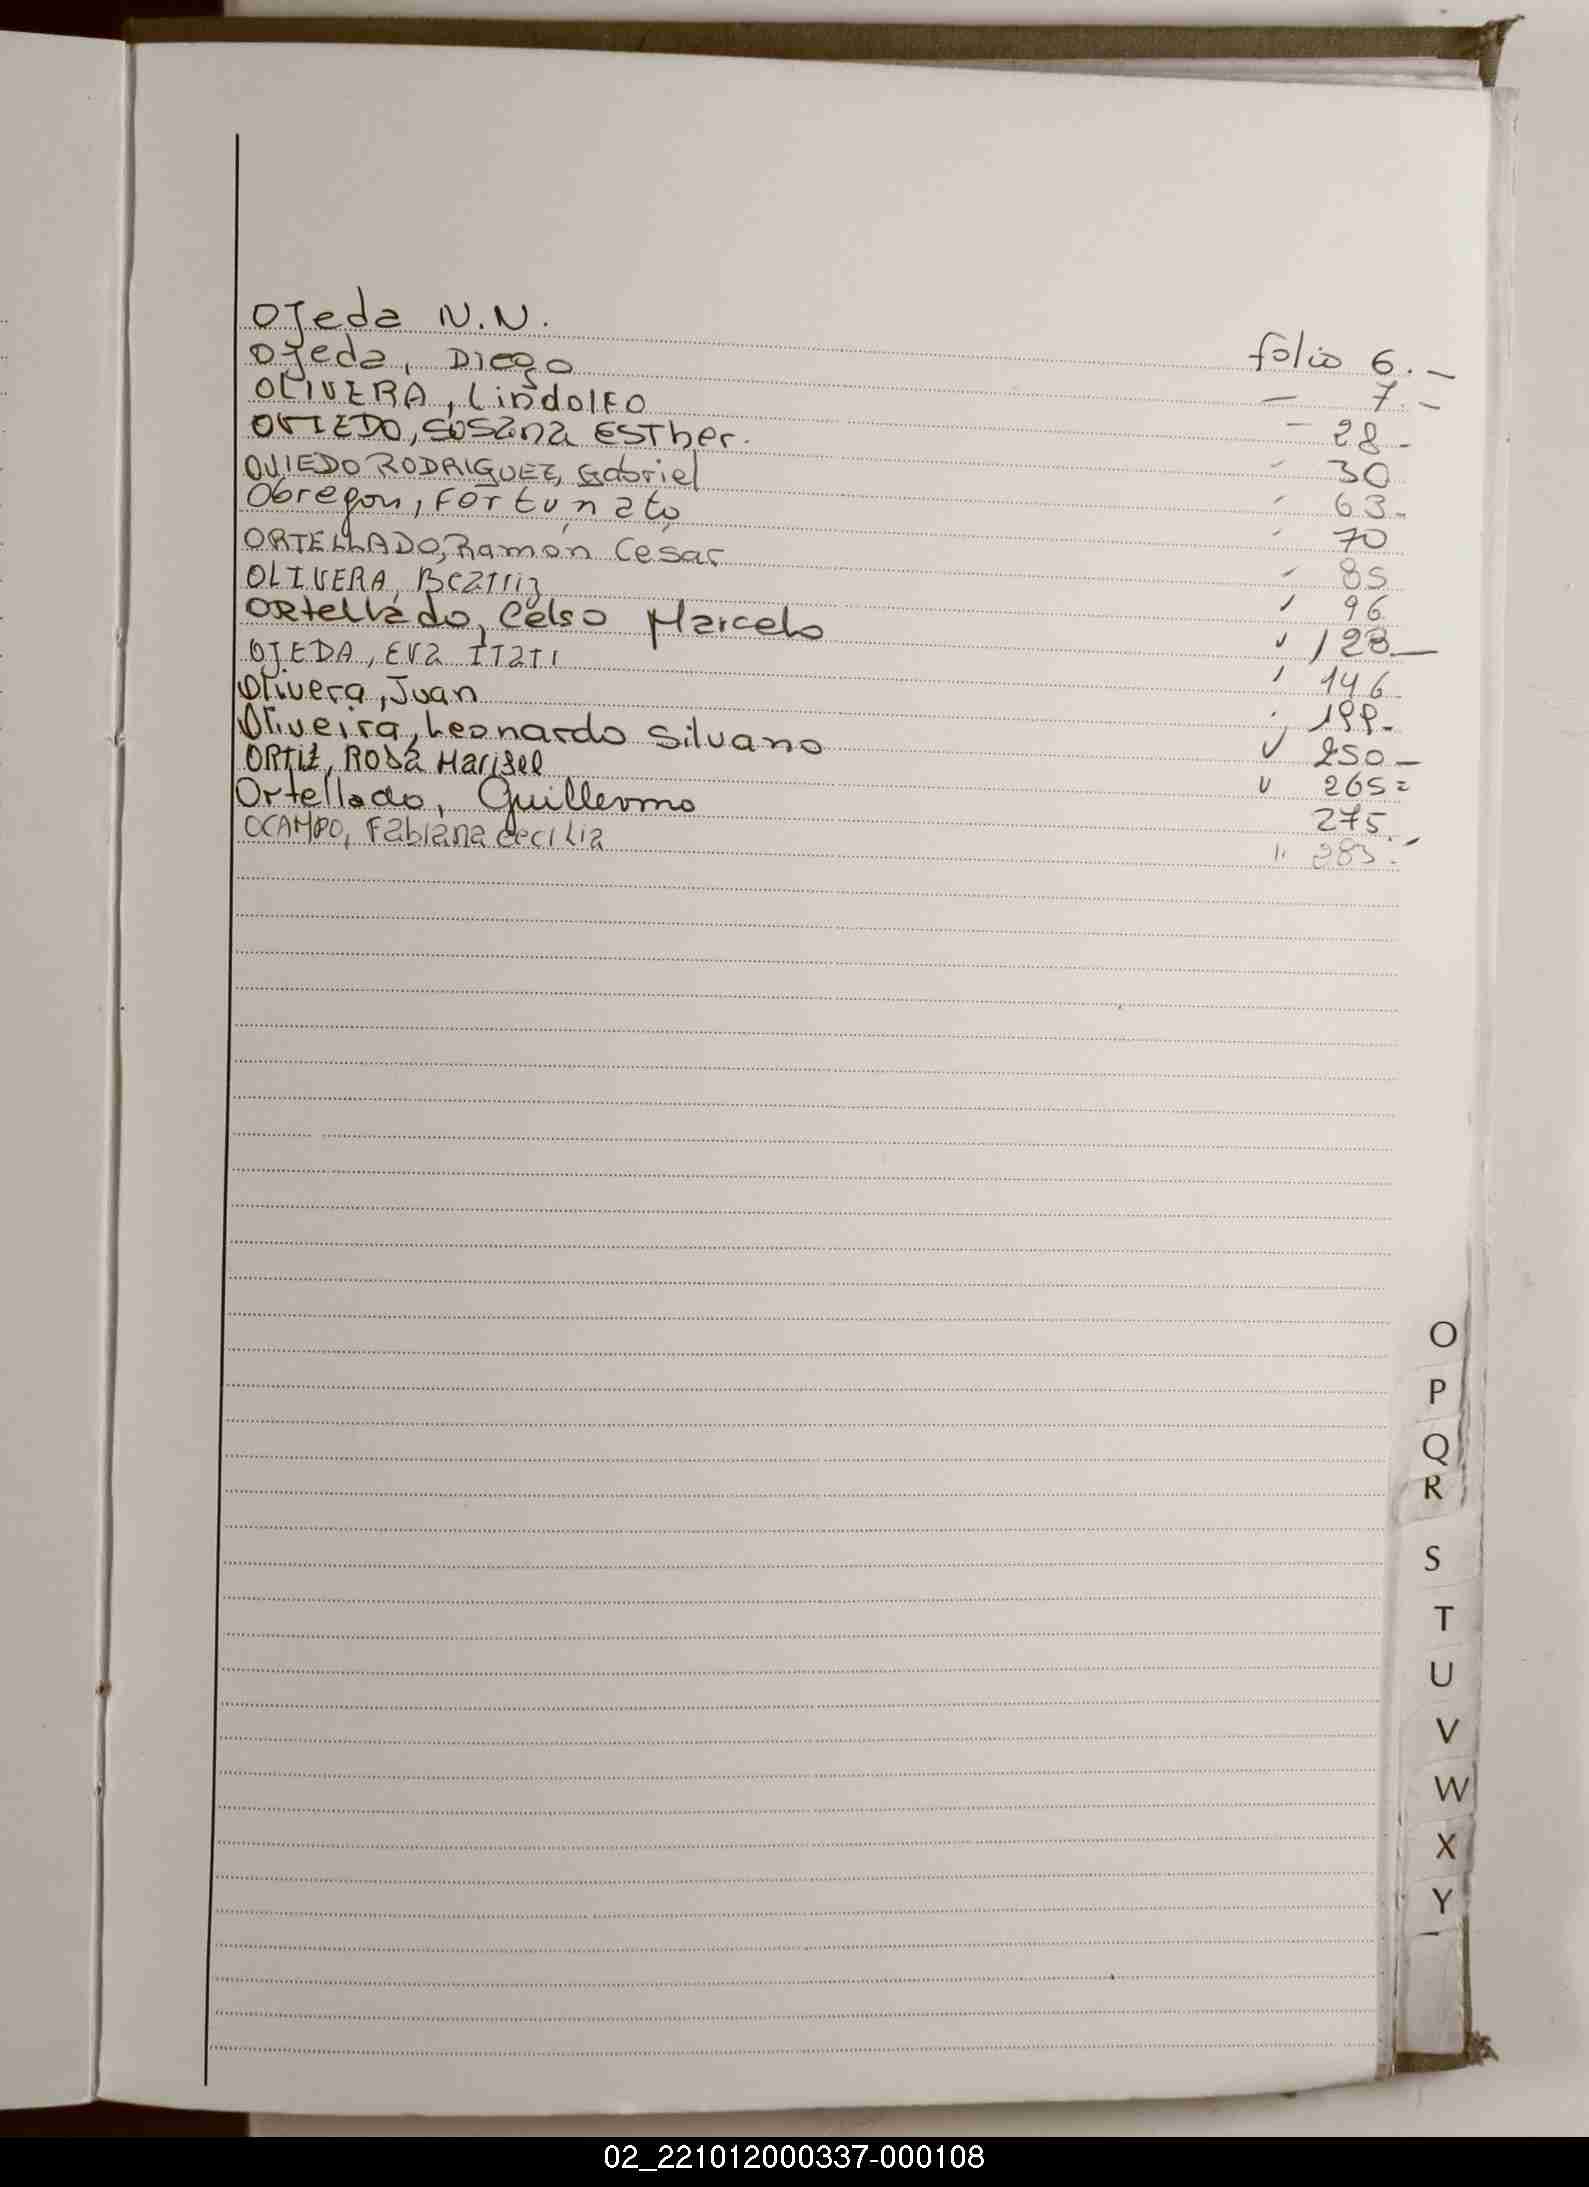 Ojeda N.N. folio 6.-
Ojeda, Diego — 7.-
OLIVERA, LindolFO - 28-
OVIEDO, SUSana ESTher. - 30
OVIEDO RODRIGUEZ, Gabriel - 63-
Obregon, Fortunato 70
ORTELLADO, Ramón César - 85
OLIVERA, Beatriz 96
ORtelládo, Celso Marcelo 128-
OJEDA, Eva ITATI 146-
Olivera, Juan 199-
Oliveira, Leonardo Silvano 250-
ORTIZ, ROSA Marisel 265=
Ortellado, Guillermo 275.-
OCAMPO, Fabiana cecilia " 283.-
O
P
Q
R
S
T
U
V
W
X
Y
02_221012000337-000108